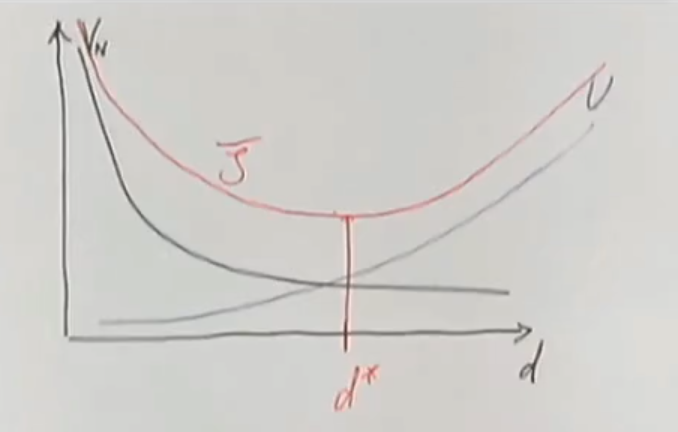 V_N
J̄
U
d
d*